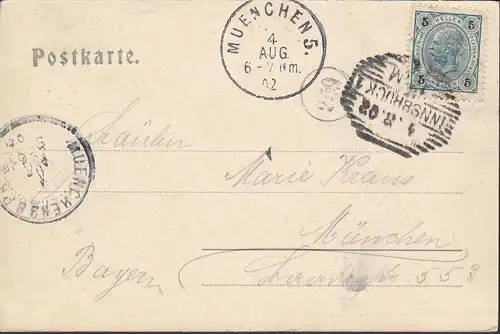 5 HELLER 5
5 5
MUENCHEN 5.
4
AUG.
6-7 Nm.
02
Postkarte.
INNSBRUCK 1
4. 8. 02
Fräulein
MUENCHEN
Marie Kraus
München
Bayern